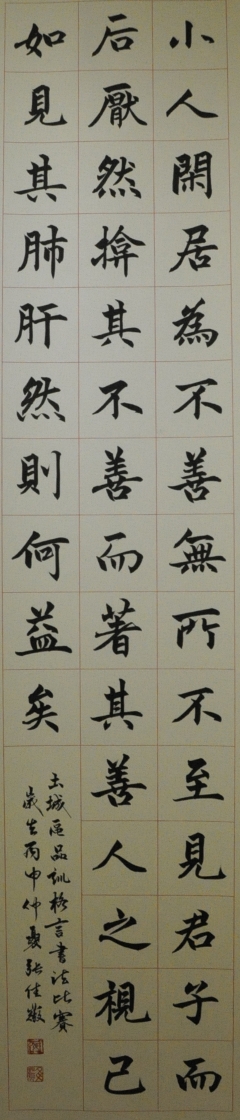 小人閑居為不善無所不至見君子而
后厭然揜其不善而著其善人之視己
如見其肺肝然則何益矣
土城區品訓格言書法比賽
歲在丙申仲夏張佳